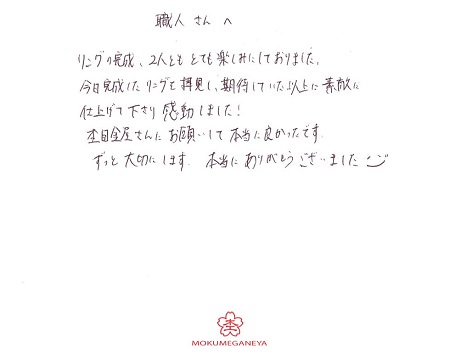 職人さんへ
リングの完成、2人ともとても楽しみにしておりました。
今日完成したリングを拝見し、期待していた以上に素敵に
仕上げて下さり感動しました!
杢目金屋さんにお願いして本当に良かったです。
ずっと大切にします。本当にありがとうございました
杢
MOKUMEGANEYA